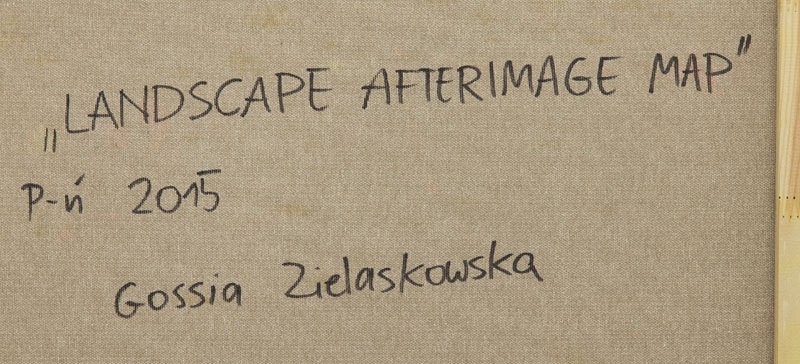 „LANDSCAPE AFTERIMAGE MAP”
P-ń 2015
Gossia Zielaskowska